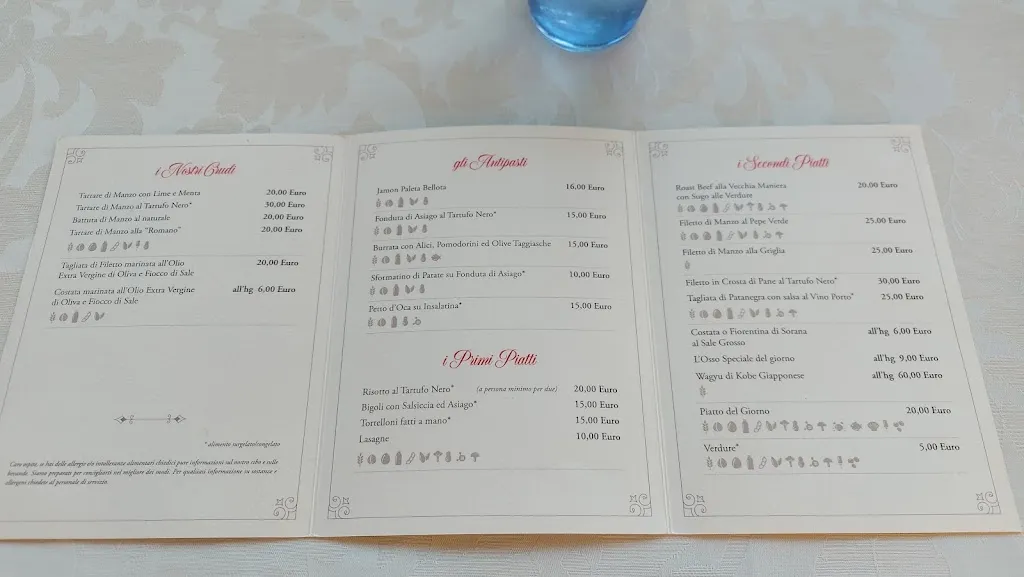 i Nostri Crudi
Tartare di Manzo con Lime e Menta 20,00 Euro
Tartare di Manzo al Tartufo Nero* 30,00 Euro
Battuta di Manzo al naturale 20,00 Euro
Tartare di Manzo alla "Romano" 20,00 Euro
Tagliata di Filetto marinata all'Olio
Extra Vergine di Oliva e Fiocco di Sale 20,00 Euro
Costata marinata all'Olio Extra Vergine
di Oliva e Fiocco di Sale all'hg 6,00 Euro
* alimento surgelato/congelato
Caro ospite, se hai delle allergie e/o intolleranze alimentari chiedici pure informazioni sul nostro cibo e sulle
bevande. Siamo preparati per consigliarti nel migliore dei modi. Per qualsiasi informazione su sostanze e
allergeni chiedere al personale di servizio.
gli Antipasti
Jamon Paleta Bellota 16,00 Euro
Fonduta di Asiago al Tartufo Nero* 15,00 Euro
Burrata con Alici, Pomodorini ed Olive Taggiasche 15,00 Euro
Sformatino di Patate su Fonduta di Asiago* 10,00 Euro
Petto d'Oca su Insalatina* 15,00 Euro
i Primi Piatti
Risotto al Tartufo Nero* (a persona minimo per due) 20,00 Euro
Bigoli con Salsiccia ed Asiago* 15,00 Euro
Torrelloni fatti a mano* 15,00 Euro
Lasagne 10,00 Euro
i Secondi Piatti
Roast Beef alla Vecchia Maniera 20,00 Euro
con Sugo alle Verdure
Filetto di Manzo al Pepe Verde 25,00 Euro
Filetto di Manzo alla Griglia 25,00 Euro
Filetto in Crosta di Pane al Tartufo Nero* 30,00 Euro
Tagliata di Patanegra con salsa al Vino Porto* 25,00 Euro
Costata o Fiorentina di Sorana all'hg 6,00 Euro
al Sale Grosso
L'Osso Speciale del giorno all'hg 9,00 Euro
Wagyu di Kobe Giapponese all'hg 60,00 Euro
Piatto del Giorno 20,00 Euro
Verdure* 5,00 Euro